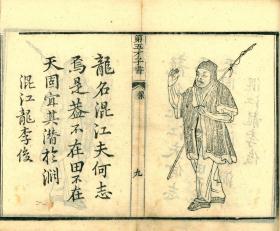 第五才子書
卷
九
龍名混江夫何志
焉是蓋不在田不在
天固宜其潛於淵
混江龍李俊